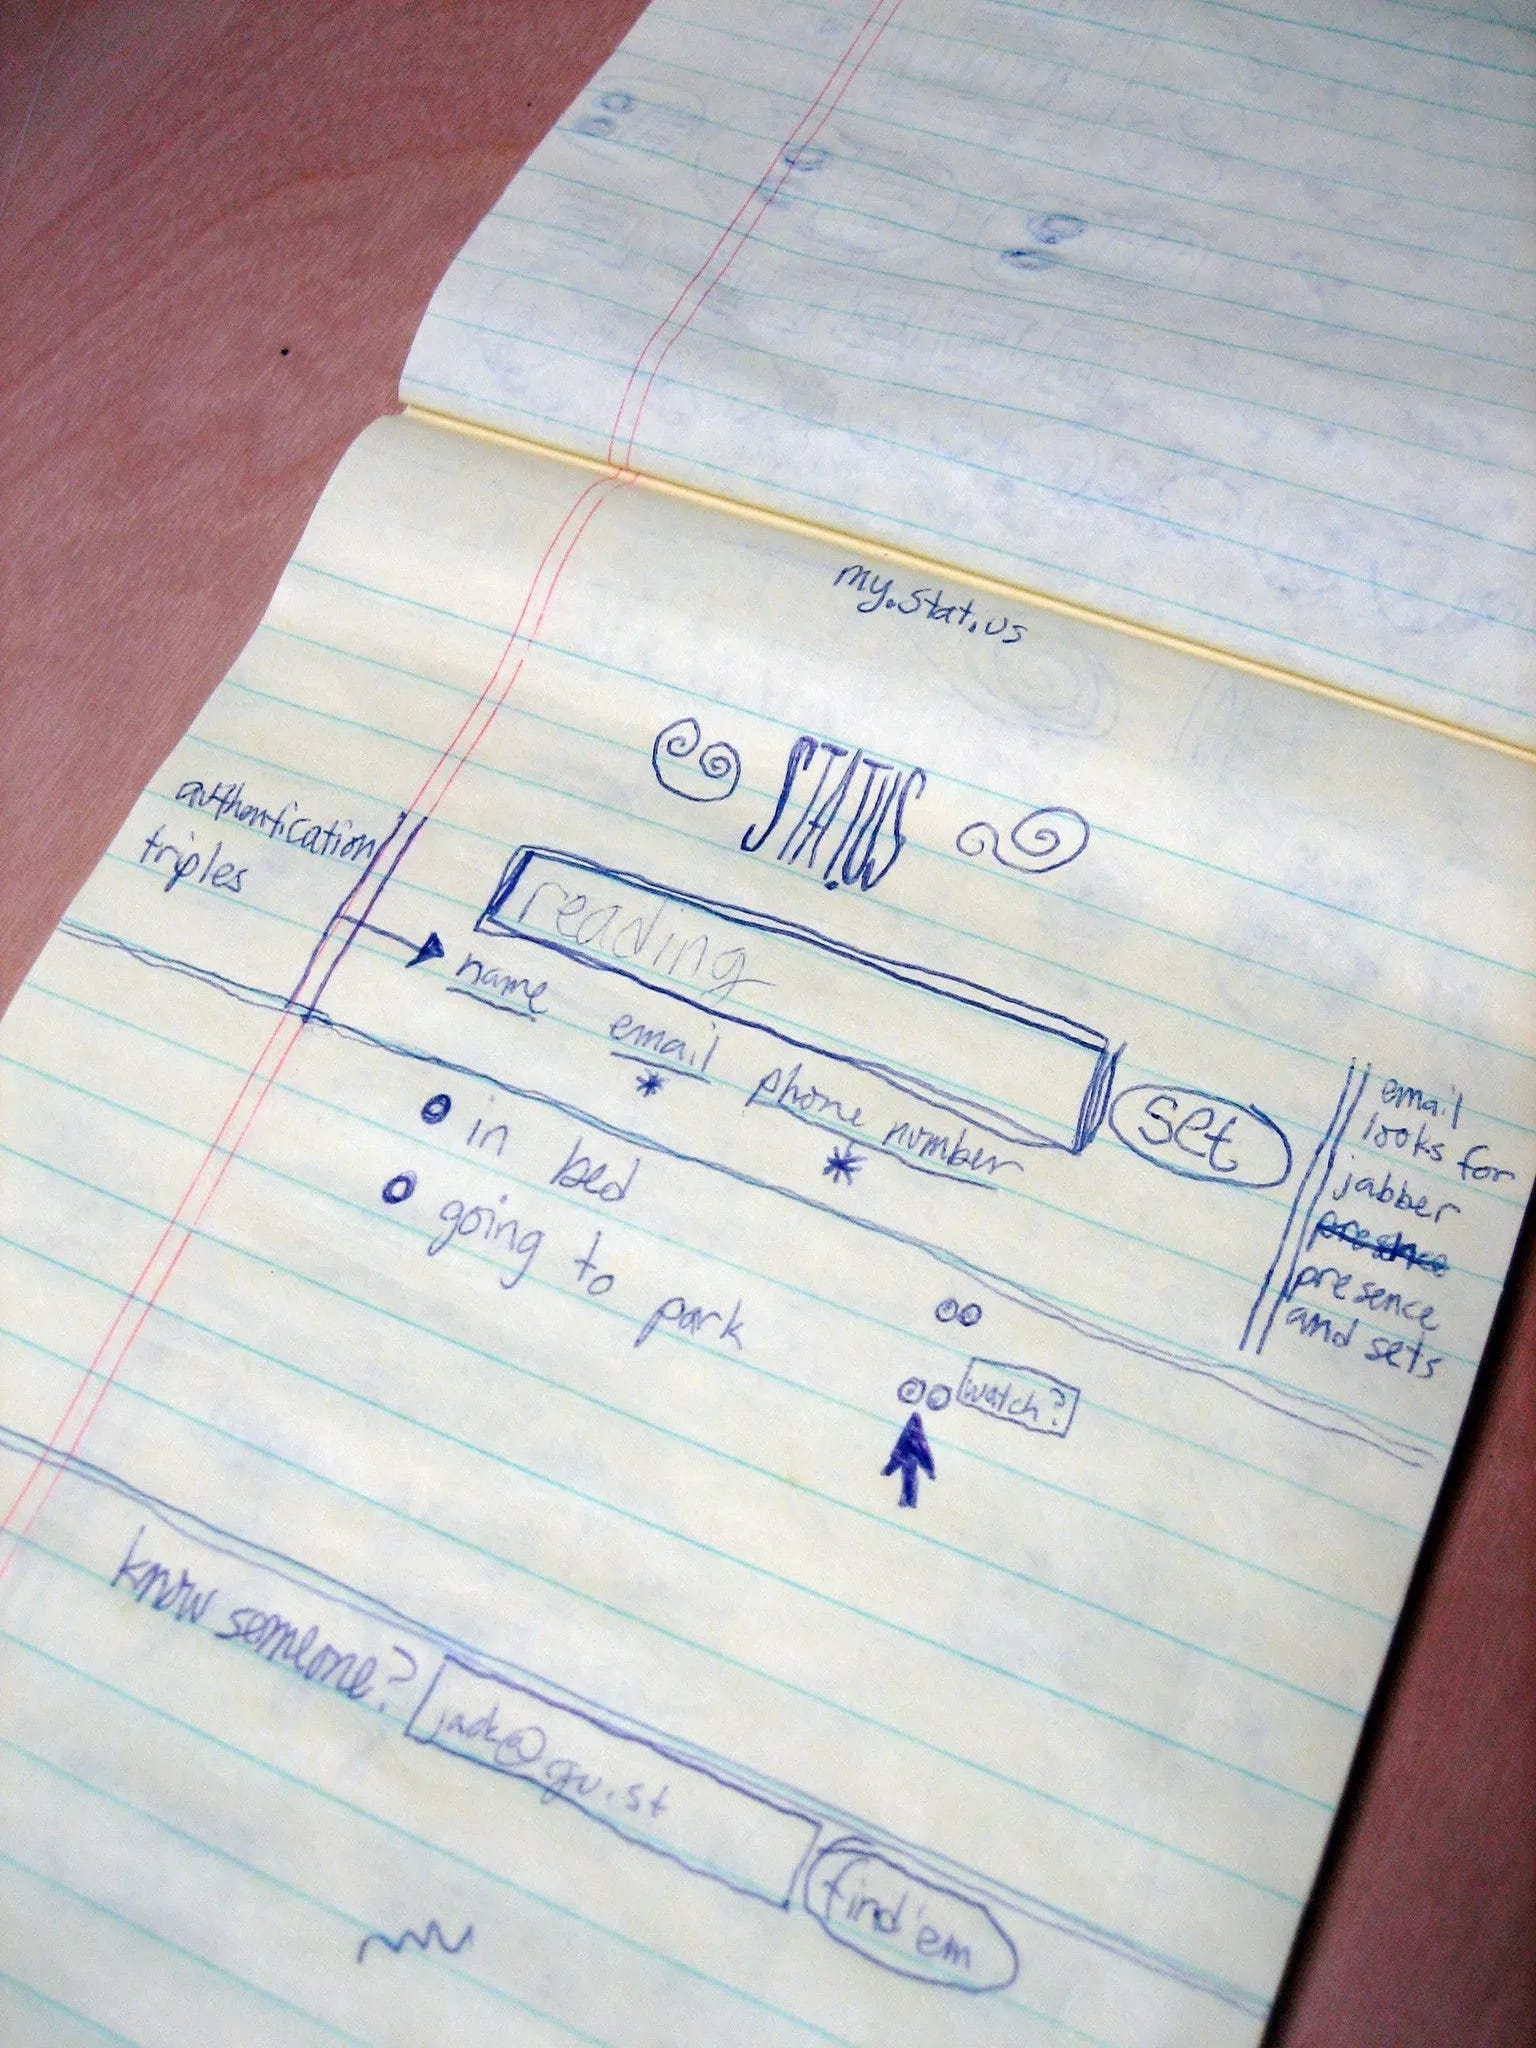 my.stat.us
STAT.US
authentication
triples
reading
name email phone number
* *
set
email
looks for
jabber
presence
presence
and sets
in bed
going to park
watch?
know someone?
jack@gu.st
find 'em